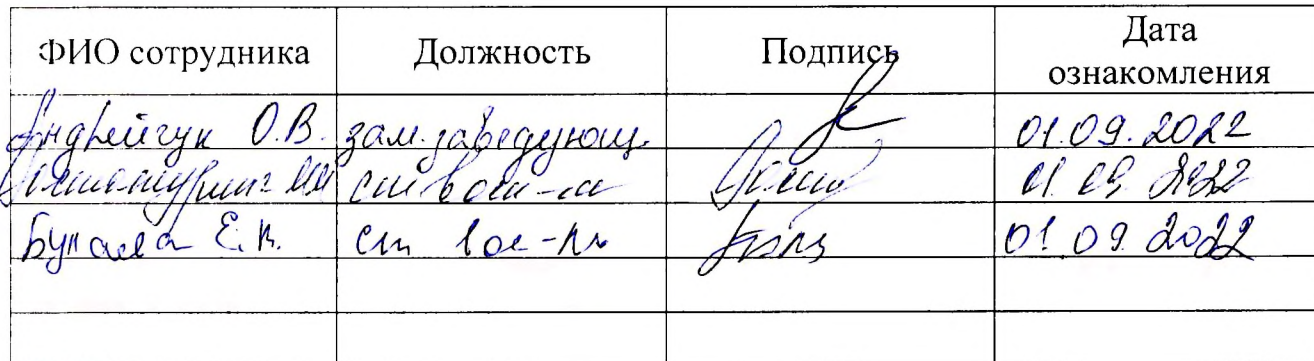 ФИО сотрудника Должность Подпись Дата ознакомления
Андрейчук О.В. зам. заведующ. 01.09.2022
ст вос-ль 01.09.2022
Е.К. ст вос-ль 01.09.2022